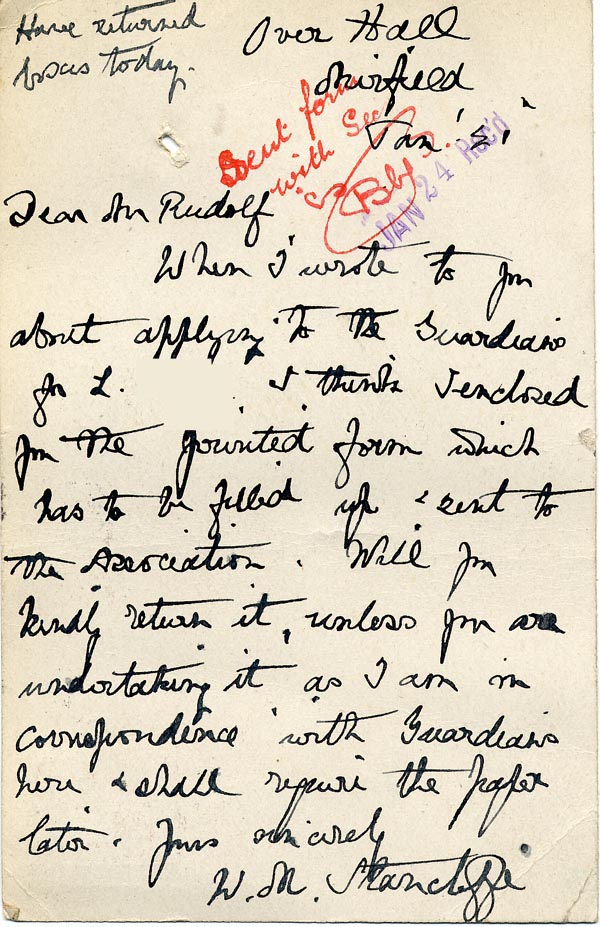 Have returned
boxes today.
Over Hall
Mirfield
Jan
Sent form
with Sec
JAN 24 Rec'd
Dear Mr Rudolf
When I wrote to you
about applying to the Guardians
for L. I think I enclosed
you the printed form which
has to be filled up & sent to
the Association. Will you
kindly return it, unless you are
undertaking it as I am in
correspondence with Guardians
here & shall require the paper
later. Yours sincerely
W. M. Stancliffe